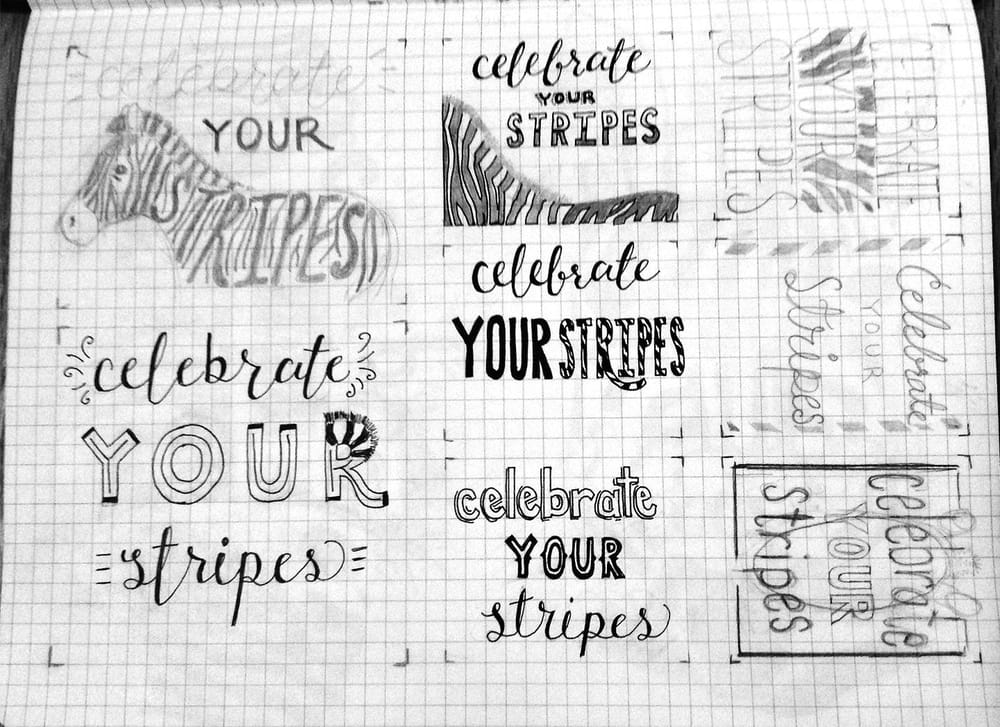 celebrate
YOUR
STRIPES
celebrate
YOUR
stripes
celebrate
YOUR
STRIPES
celebrate
YOUR STRIPES
celebrate
YOUR
stripes
CELEBRATE
YOUR
STRIPES
Celebrate
YOUR
Stripes
celebrate
YOUR
stripes